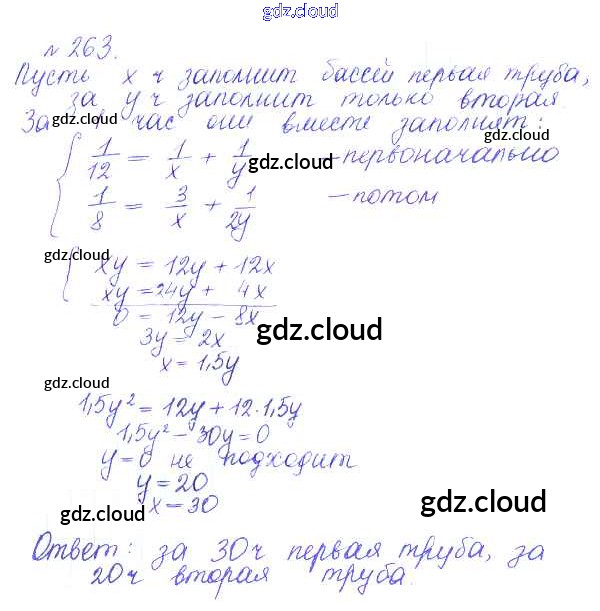 gdz.cloud
№ 263.
Пусть x ч заполнит бассей первая труба,
за y ч заполнит только вторая.
За час они вместе заполнят:
gdz.cloud
1/12 = 1/x + 1/y - первоначально
gdz.cloud
1/8 = 3/x + 1/2y - потом
gdz.cloud
xy = 12y + 12x
xy = 24y + 4x
0 = 12y - 8x
gdz.cloud
3y = 2x
x = 1,5y
gdz.cloud
1,5y² = 12y + 12·1,5y
1,5y² - 30y = 0
y = 0 не подходит
y = 20
x = 30
gdz.cloud
gdz.cloud
Ответ: за 30ч первая труба, за
20ч вторая труба.
gdz.cloud